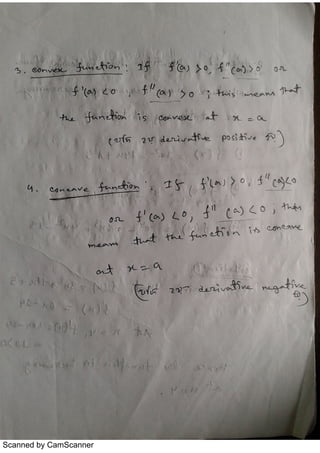 3. convex function: If f'(a) > 0, f''(a) > 0 or
f'(a) < 0 , f''(a) > 0 ; this means that
the function is convex at x = a
derivative positive
4. concave function: If, f'(a) > 0, f''(a) < 0
or f'(a) < 0, f'' (a) < 0, this
means that the function is concave
at x = a
derivative negative
Scanned by CamScanner